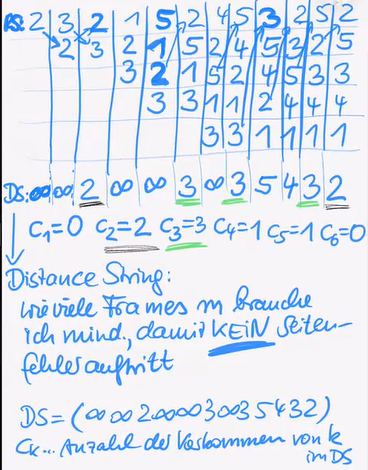 RS: 2 3 2 1 5 2 4 5 3 2 5 2
2 3 2 1 5 2 4 5 3 2 5
3 2 1 5 2 4 5 3 3
3 3 1 1 2 4 4 4
3 3 1 1 1 1
DS: ∞ ∞ 2 ∞ ∞ 3 ∞ 3 5 4 3 2
C₁=0 C₂=2 C₃=3 C₄=1 C₅=1 C₆=0
Distance String:
wie viele Frames m brauche
ich mind., damit KEIN Seiten-
fehler auftritt
DS=(∞∞2∞∞3∞35432)
Cₖ... Anzahl der Vorkommen von k
im DS